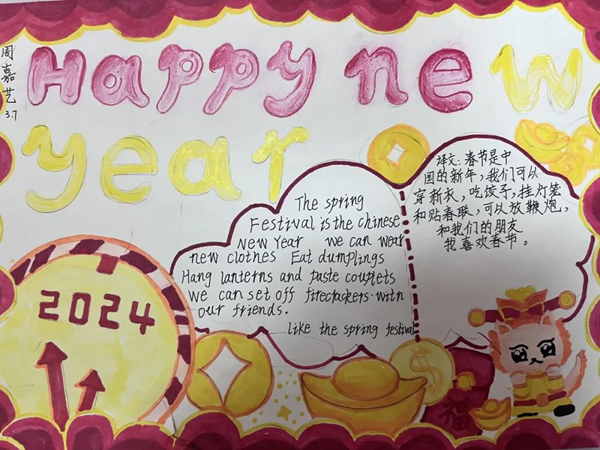 周嘉艺 3.7
Happy new
year
The spring
Festival is the chinese
New Year we can wear
new clothes Eat dumplings
Hang lanterns and paste couplets
We can set off firecrackers with
our friends.
like the spring festival
译文:春节是中
国的新年,我们可以
穿新衣,吃饺子,挂灯笼
和贴春联,可以放鞭炮,
和我们的朋友
我喜欢春节。
2024
$
福